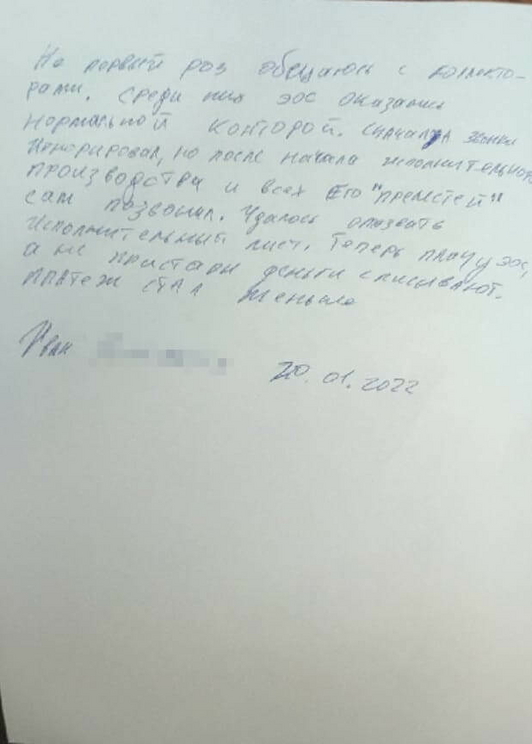 Не первый раз общаюсь с коллекто-
рами. Среди них ЭОС оказались
нормальной конторой. Сначала звонки
игнорировал, но после начала исполнительного
производства и всех его "прелестей"
сам позвонил. Удалось отозвать
исполнительный лист. Теперь плачу ЭОС,
а не приставы деньги списывают.
Платеж стал меньше
Иван
20.01.2022